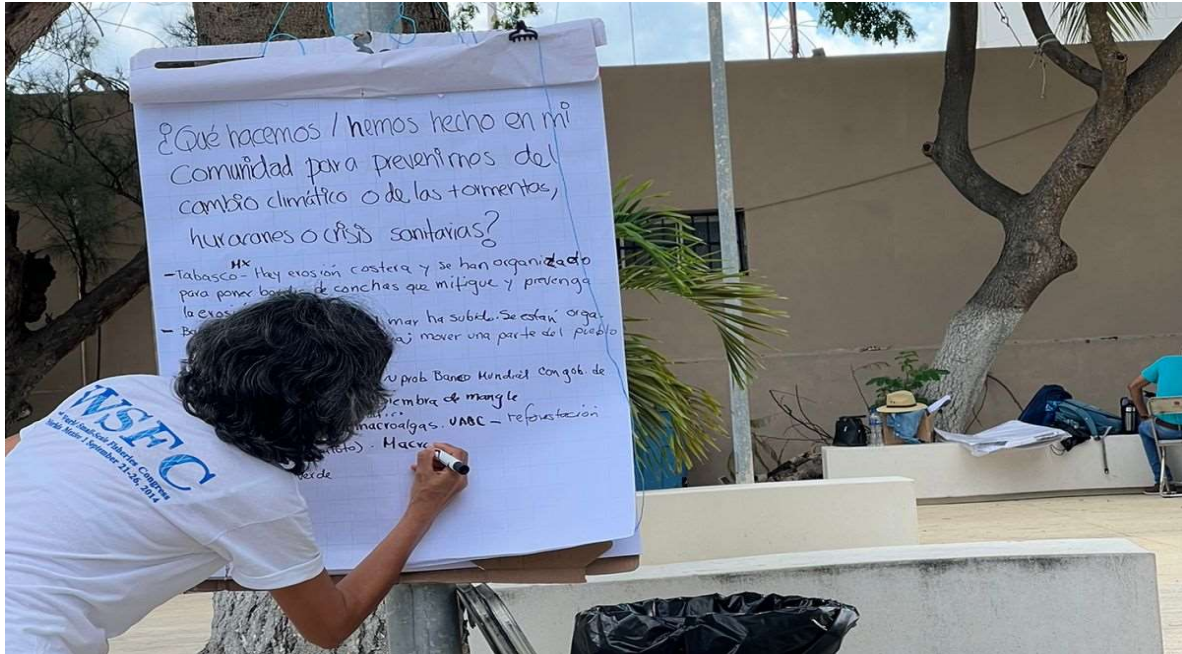 ¿Qué hacemos / hemos hecho en mi
comunidad para prevenirnos del
cambio climático o de las tormentas,
huracanes o crisis sanitarias?
- Tabasco - MX Hay erosión costera y se han organizado
para poner de conchas que mitigue y prevenga
la
- mar ha subido. Se están orga-
mover una parte del pueblo
prob Banco Mundial con gob. de
siembra de mangle
macroalgas. UABC - reforestación
Macro
WSFC
World Small-Scale Fisheries Congress
Mérida - Mexico | September 21-26, 2014